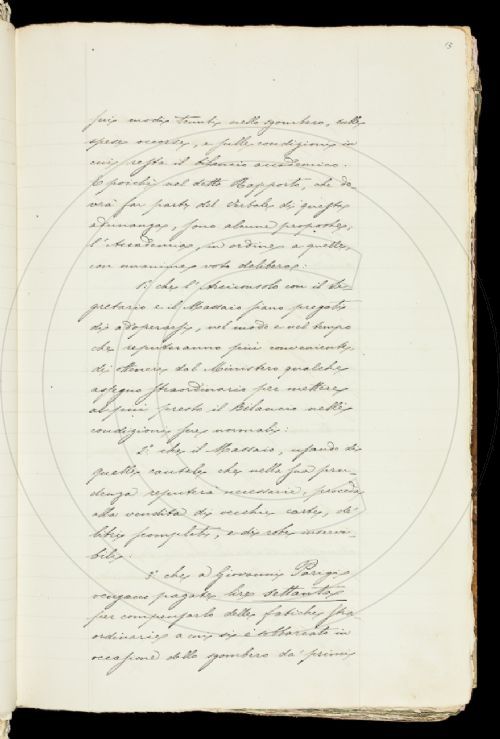 13
sui modi tenuti nello sgombero, sulle
spese occorse, e sulle condizioni in
cui resta il bilancio accademico.
E poichè nel detto Rapporto, che do
vrà far parte del Verbale di questa
adunanza, sono alcune proposte;
l'Accademia, in ordine a quelle,
con unanime voto delibera:
1.º che l'Arciconsolo con il Se
gretario e il Massaio siano pregati
di adoperarsi, nel modo e nel tempo
che reputeranno più conveniente,
di ottenere dal Ministero qualche
assegno straordinario per mettere
al più presto il Bilancio nelle
condizioni sue normali:
2.º che il Massaio, usando di
quelle cautele che nella sua pru-
denza reputerà necessarie, proceda
alla vendita di vecchie carte, di
libri scompleti, e di robe inservi-
bili:
3.º che a Giovanni
vengano pagate lire settanta
per compensarlo delle fatiche stra
ordinarie a cui si è sobbarcato in
occasione dello sgombero da' primi